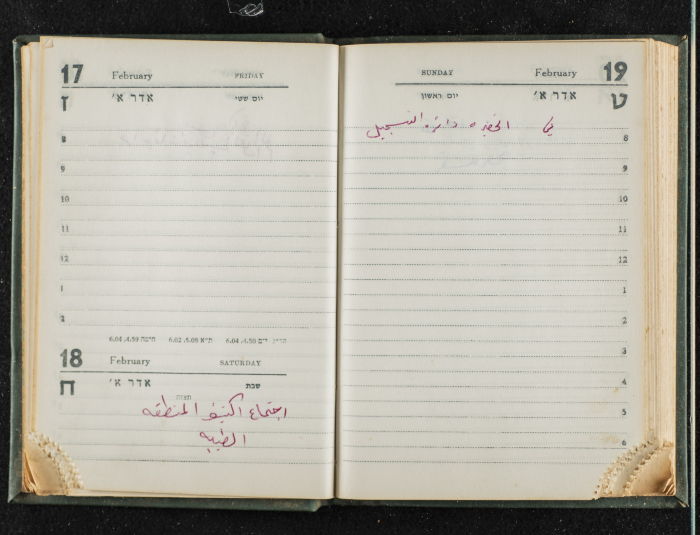 17 February FRIDAY
ז אדר א׳ יום ששי
8
9
10
11
12
1
2
ת״א 6.02, 5.08 חיפה 6.04, 4.59
18 February SATURDAY
ח אדר א׳ שבת
اجتماع اكتيف المنطقه
الطيبه
SUNDAY February 19
יום ראשון אדר א׳ ט
في الخضيره دائرة التسجيل
8
9
10
11
12
1
2
3
4
5
6